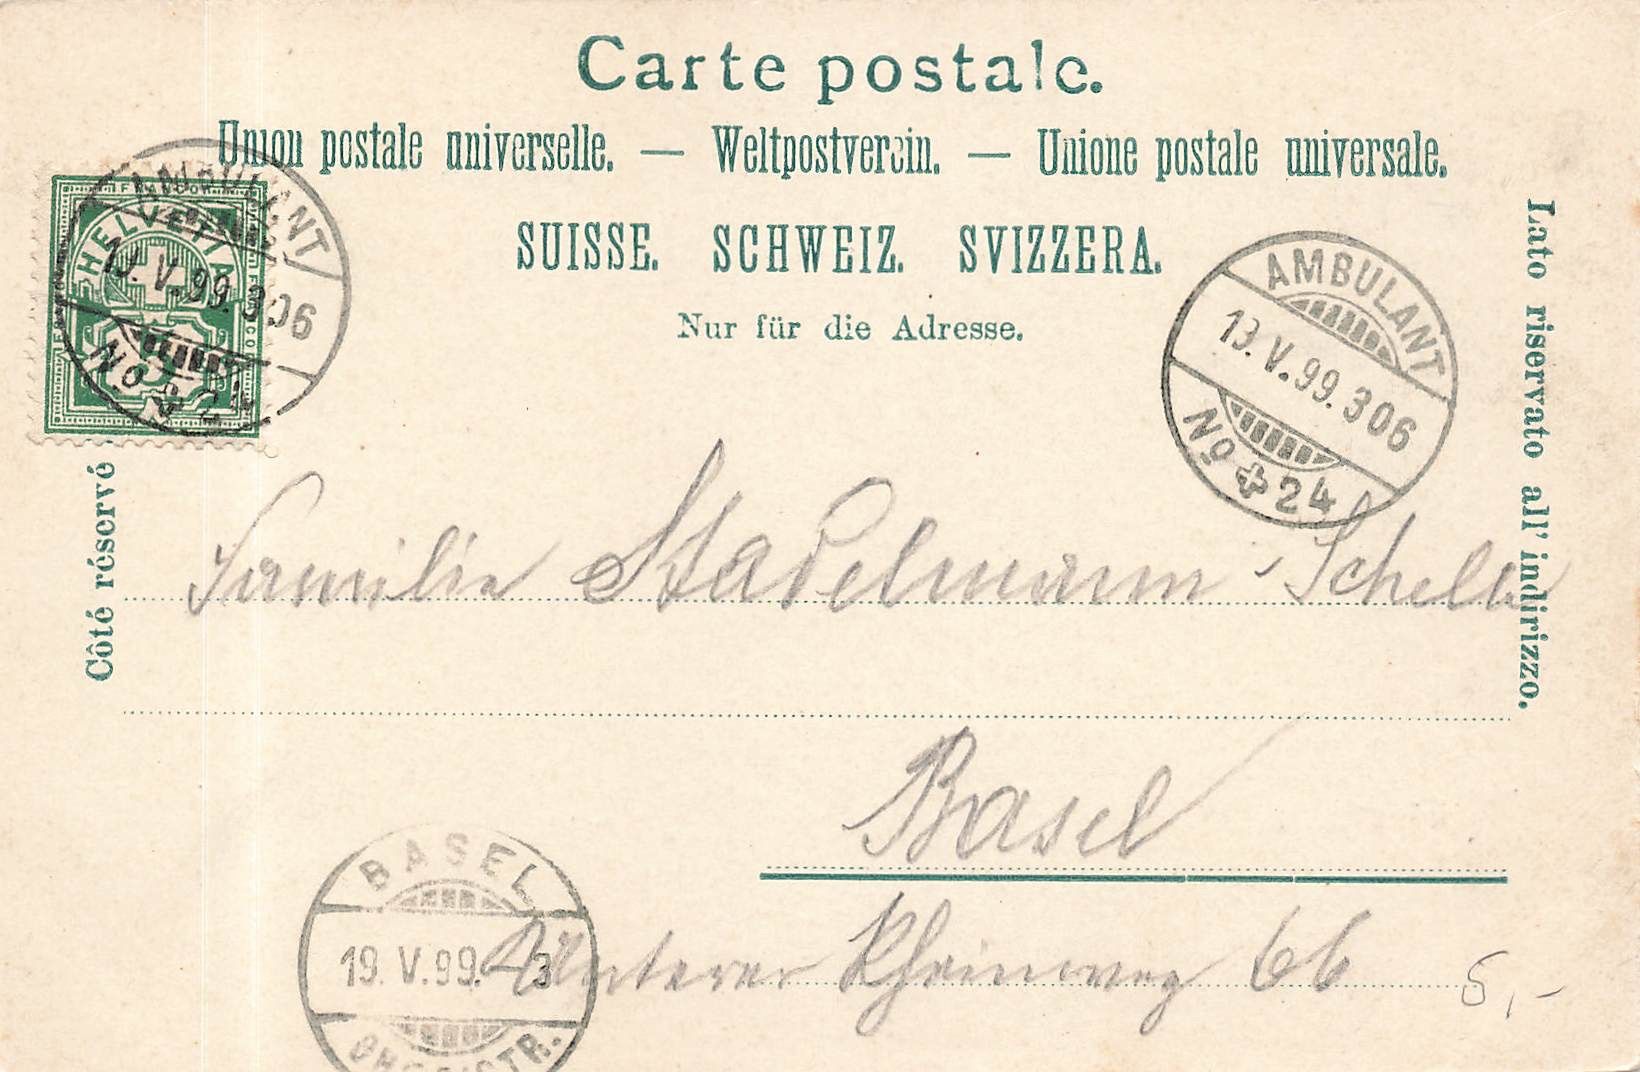 Carte postale.
Union postale universelle. — Weltpostverein. — Unione postale universale.
SUISSE. SCHWEIZ. SVIZZERA.
Nur für die Adresse.
Côté réservé
Lato riservato all' indirizzo.
HELVETIA
FRANCO
5
AMBULANT
V.99.306
No 24
AMBULANT
13.V.99.306
No 24
Familie Stadelmann-Schelle
Basel
Unterer Rheinweg 66
BASEL
19.V.99. 3
5,-